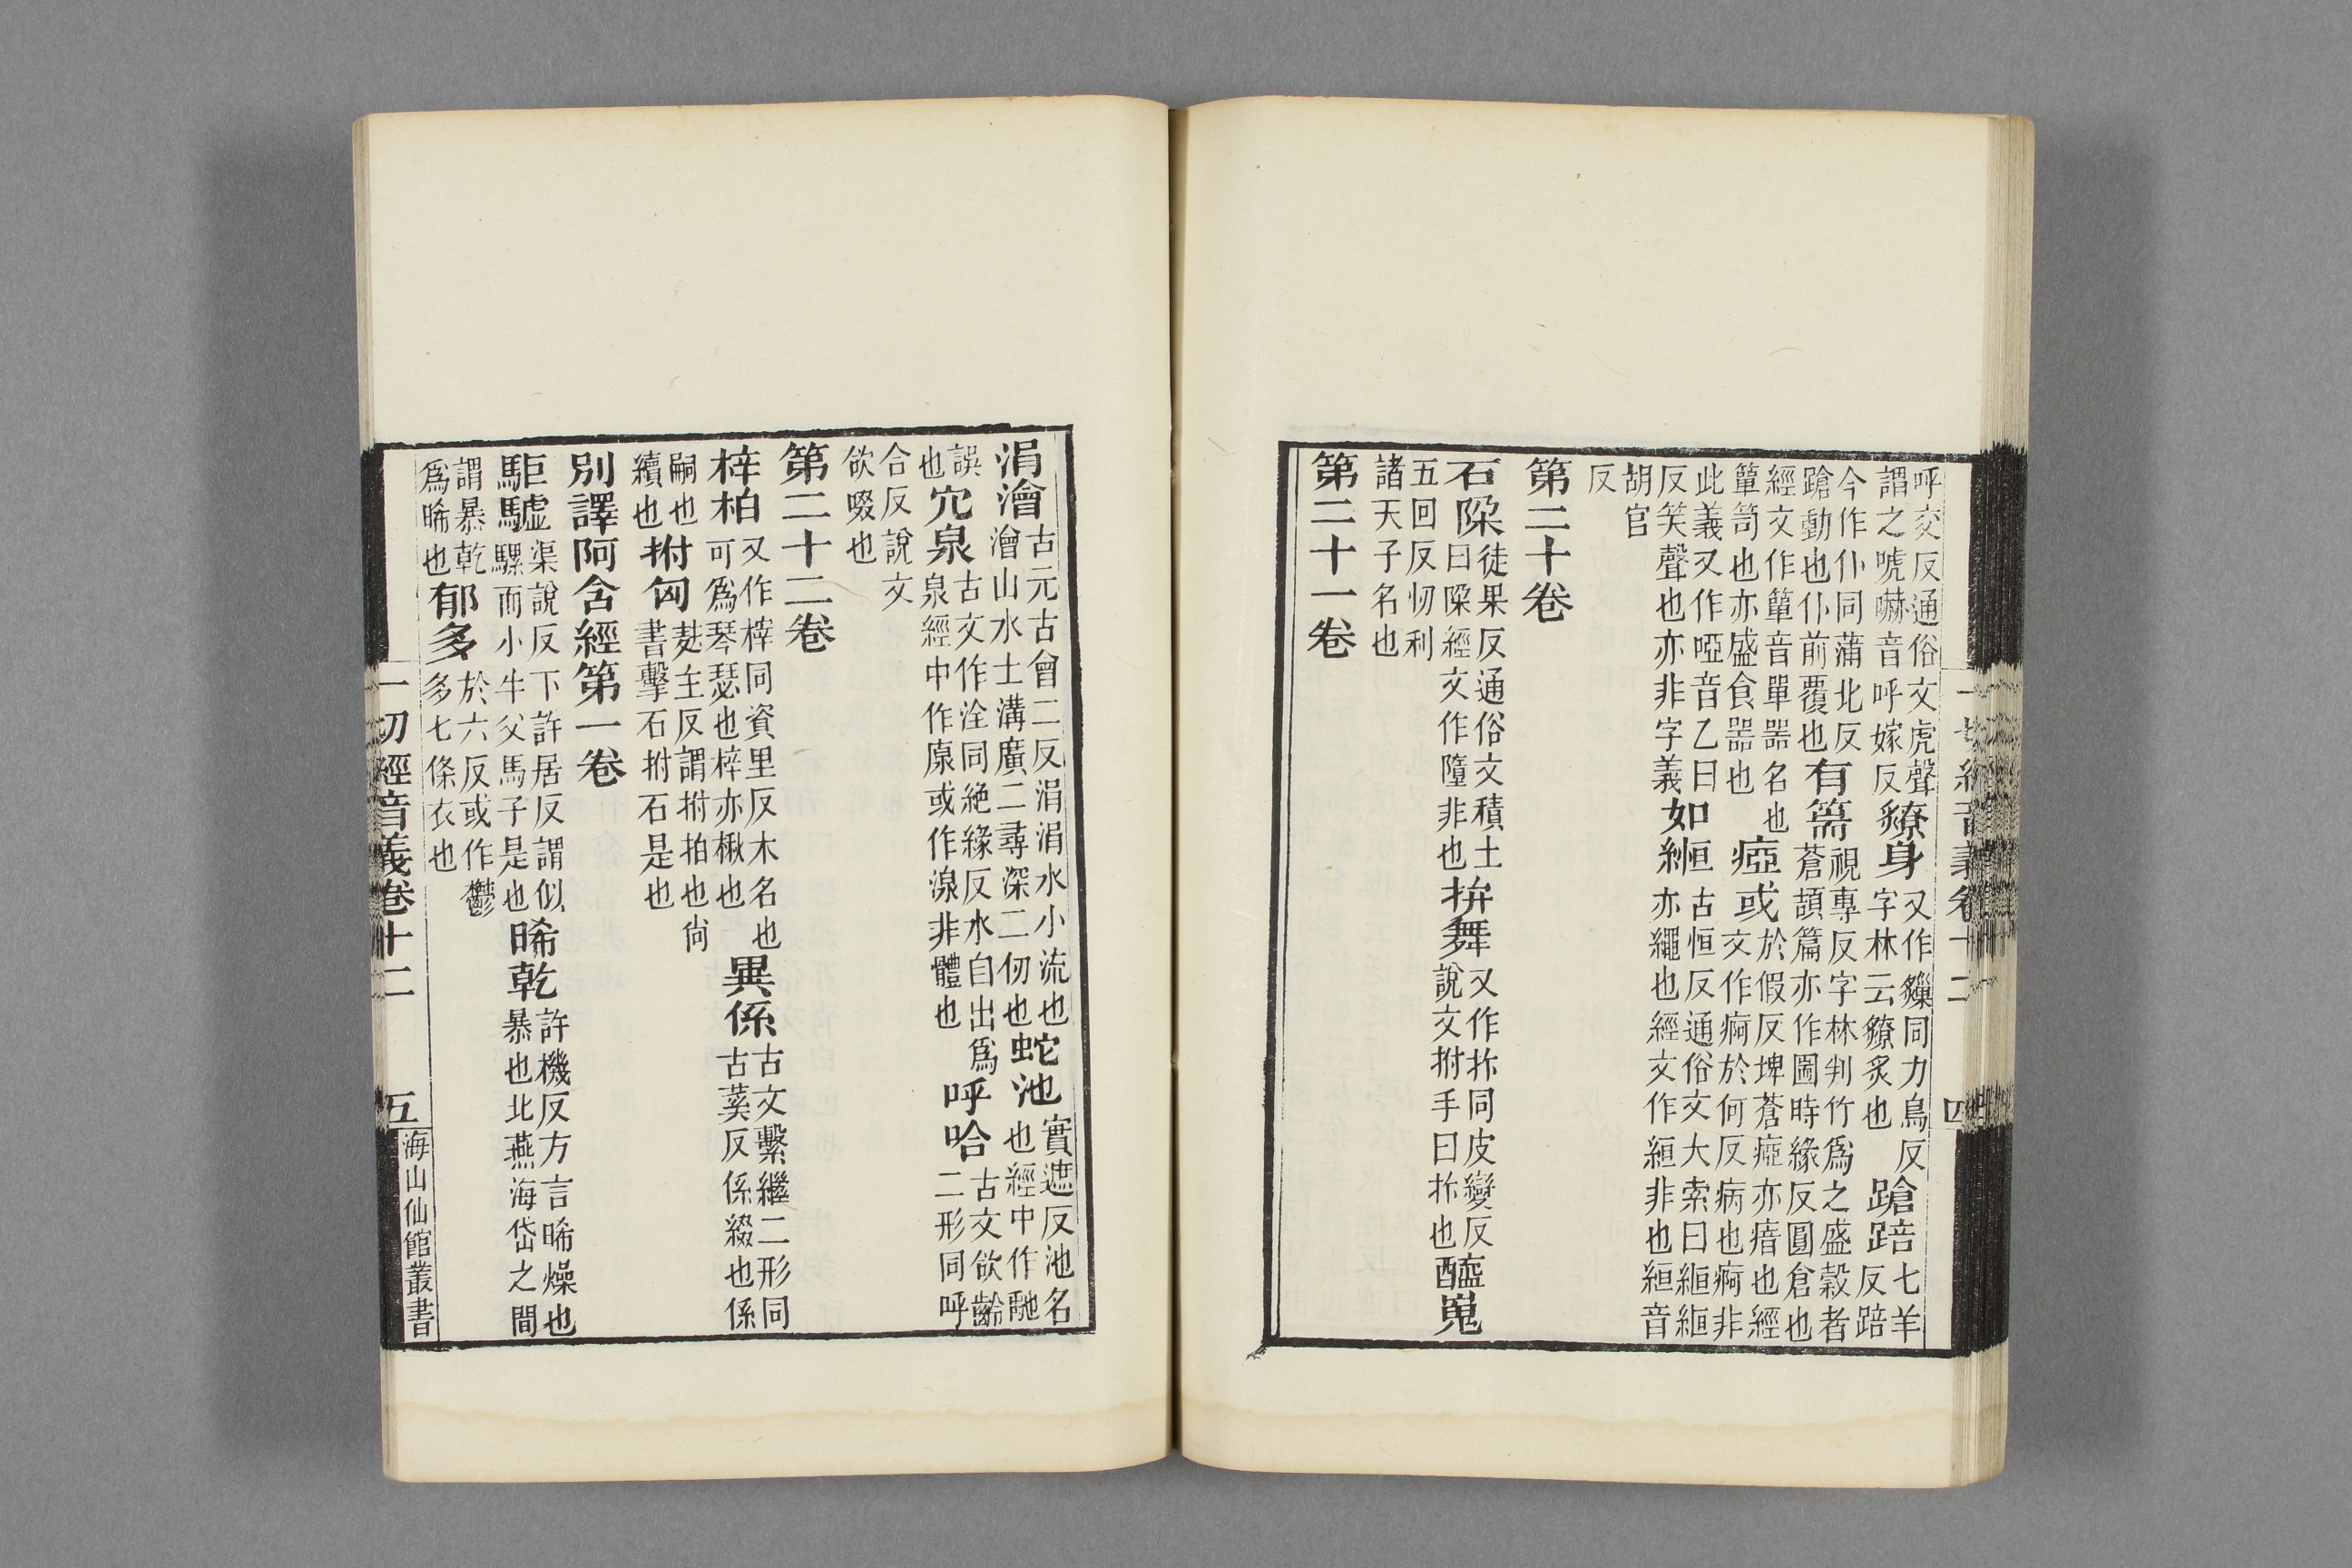 呼交反通俗文虎聲謂之唬嚇音呼嫁反獠身又作䝤同力鳥反字林云獠炙也蹌踣七羊反踣
今作仆同蒲北反蹌動也仆前覆也有篅視專反字林判竹爲之盛穀者蒼頡篇亦作圌時緣反圓倉也
經文作簞音單器名也簞笥也亦盛食器也瘂或於假反埤蒼瘂亦瘖也經文作痾於何反病也痾非
此義又作啞音乙曰反笑聲也亦非字義如絚古恒反通俗文大索曰絚絚亦繩也經文作絙非也絙音
胡官反
第二十卷
石𨹃徒果反通俗文積土曰𨹃經文作墮非也拚舞又作拆同皮變反說文拊手曰拆也醯嵬
五回反忉利諸天子名也
第二十一卷
一切經音義卷十二 四
涓澮古元古會二反涓涓水小流也澮山水土溝廣二尋深二仞也蛇池實遮反池名也經中作馳
誤也泬泉古文作洤同絶緣反水自出爲泉經中作原或作湶非體也呼哈古文欲齡二形同呼
合反說文欲啜也
第二十二卷
梓柏又作榟同資里反木名也可爲琴瑟也梓亦楸也異係古文繫繼二形同古䒽反係綴也係
嗣也續也拊匈麸主反謂拊拍也尙書擊石拊石是也
別譯阿含經第一卷
駏驉渠說反下許居反謂似騾而小牛父馬子是也晞乾許機反方言晞燥也暴也北燕海岱之間
謂暴乾爲晞也郁多於六反或作鬱多七條衣也
一切經音義卷十二 五 海山仙館叢書